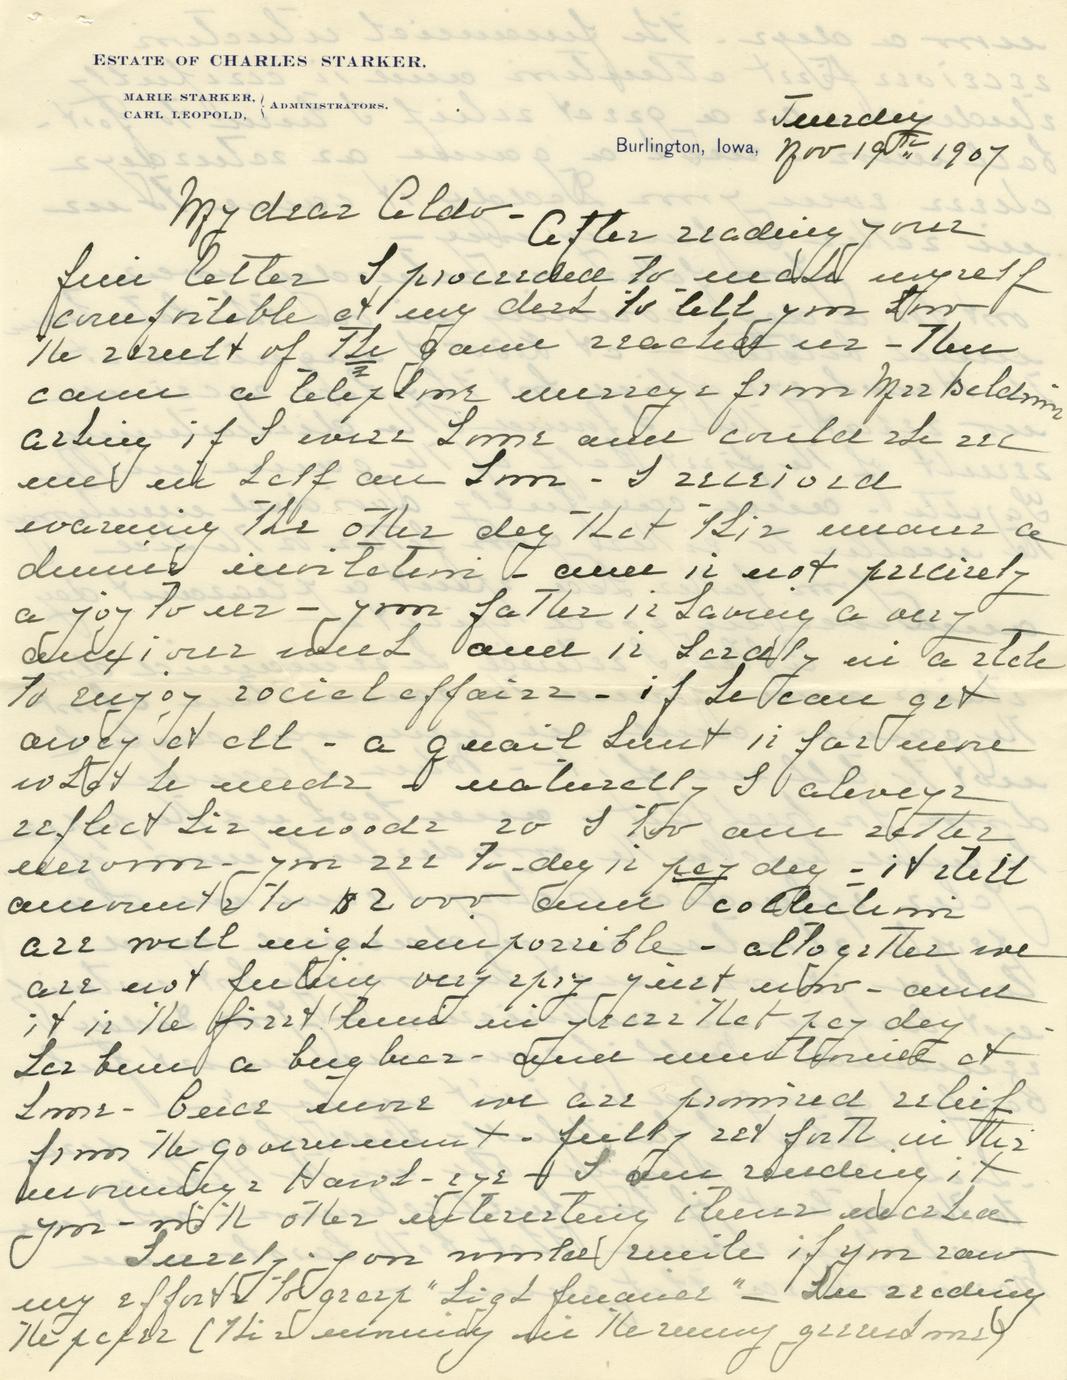 ESTATE OF CHARLES STARKER.
MARIE STARKER,
CARL LEOPOLD,
ADMINISTRATORS.
Tuesday
Burlington, Iowa, Nov 19th 1907
My dear Aldo -
After reading your
fine letter I proceeded to make myself
comfortable at my desk to tell you how
the result of The game reached us - Then
came a telephone message from Mrs Baldwin
asking if I were home and could she see
me in half an hour - I received
warning the other day that this means a
dinner invitation - and is not precisely
a joy to us - your father is having a very
anxious week and is hardly in a state
to enjoy social affairs - if he can get
away at all - a quail hunt is far more
what he needs - naturally I always
reflect his moods so I too am rather
- you see to-day is pay day - it still
amounts to $2000 and collections
are well nigh impossible - altogether we
are not feeling very spry just now - and
it is the first time in years that pay day
has been a bugbear - and mentioned at
home - Once more we are promised relief
from the government - fully set forth in this
mornings Hawk-eye - I am sending it
you - with other interesting items marked
Surely you would smile if you saw
my efforts to grasp "high finance" - In reading
the paper (this morning in the sunny green room)